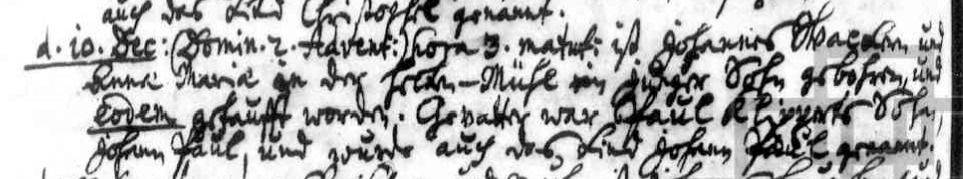 auch das Kind Christoffel genannt.
d. 10. Dec: (Domin. 2. Advent:) hora 3. matut: ist Johannes und
Anna Maria in der Mühl ein junger Sohn gebohren, und
eodem getaufft worden. Gevatter war Paul Klipperts Sohn,
Johann Paul, und wurde auch das Kind Johann Paul genannt.